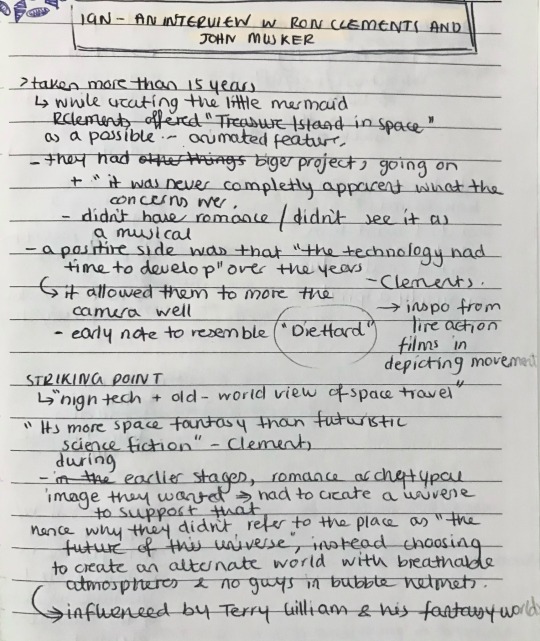 IGN - AN INTERVIEW W RON CLEMENTS AND
JOHN MUSKER
> taken more than 15 years
↳ while creating the little mermaid
RClements offered "Treasure Island in space"
as a possible :- animated feature.
- they had other things biger projects going on
+ "it was never completly apparent what the
concerns wer.
- didn't have romance / didn't see it as
a musical
- a positive side was that "the technology had
time to develop" over the years
- Clements.
↳ it allowed them to more the
camera well
→ inspo from
live action
films in
depicting movement
- early note to resemble "Die Hard"
STRIKING POINT
↳ "high tech + old-world view of space travel"
"Its more space fantasy than futuristic
science fiction" - Clements
during
- in the earlier stages, romance archetypal
image they wanted → had to create a universe
to support that
hence why they didn't refer to the place as "the
future of this universe", instead choosing
to create an alternate world with breathable
atmospheres & no guys in bubble helmets.
↳ influenced by Terry William & his fantasy world